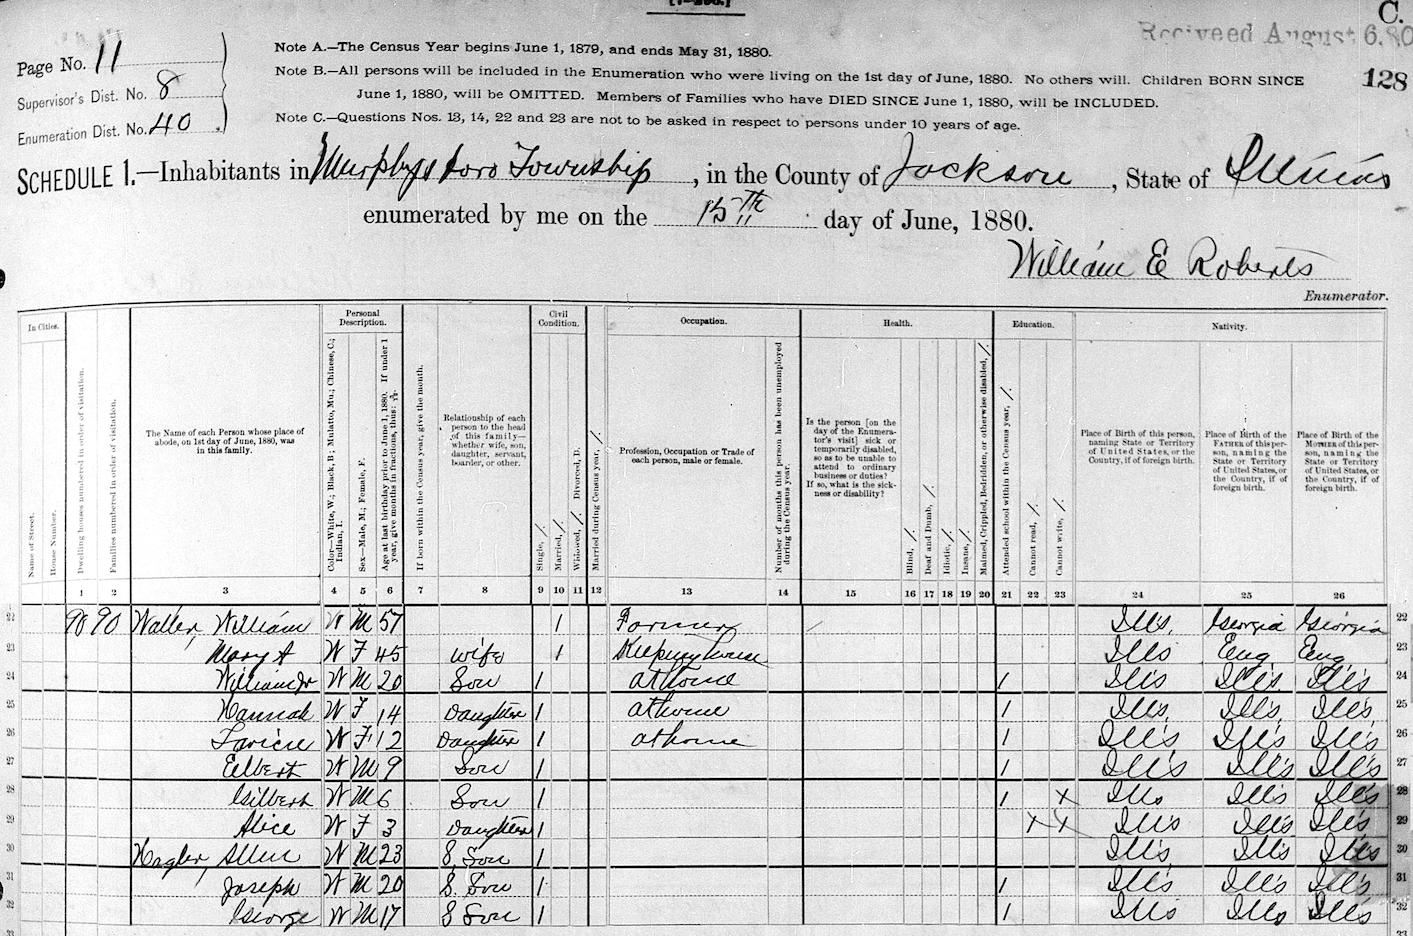 [7-296.]
C.
Received August 6. 80
Page No. 11
Supervisor's Dist. No. 8
Enumeration Dist. No. 40
128
Note A.—The Census Year begins June 1, 1879, and ends May 31, 1880.
Note B.—All persons will be included in the Enumeration who were living on the 1st day of June, 1880. No others will. Children BORN SINCE
June 1, 1880, will be OMITTED. Members of Families who have DIED SINCE June 1, 1880, will be INCLUDED.
Note C.—Questions Nos. 13, 14, 22 and 23 are not to be asked in respect to persons under 10 years of age.
SCHEDULE 1.—Inhabitants in Murphysboro Township, in the County of Jackson, State of Illinois
enumerated by me on the 15th day of June, 1880.
William E Roberts
Enumerator.
In Cities.
Name of Street.
House Number.
Dwelling houses numbered in order of visitation.
Families numbered in order of visitation.
The Name of each Person whose place of
abode, on 1st day of June, 1880, was
in this family.
Personal
Description.
Color—White, W.; Black, B; Mulatto, Mu.; Chinese, C.;
Indian, I.
Sex—Male, M.; Female, F.
Age at last birthday prior to June 1, 1880. If under 1
year, give months in fractions, thus:
If born within the Census year, give the month.
Relationship of each
person to the head
of this family—
whether wife, son,
daughter, servant,
boarder, or other.
Civil
Condition.
Single, /.
Married, /.
Widowed, /. Divorced, D.
Married during Census year, /.
Occupation.
Profession, Occupation or Trade of
each person, male or female.
Number of months this person has been unemployed
during the Census year.
Health.
Is the person [on the
day of the Enumera-
tor's visit] sick or
temporarily disabled,
so as to be unable to
attend to ordinary
business or duties?
If so, what is the sick-
ness or disability?
Blind, /.
Deaf and Dumb, /.
Idiotic, /.
Insane, /.
Maimed, Crippled, Bedridden, or otherwise disabled, /.
Education.
Attended school within the Census year, /.
Cannot read, /.
Cannot write, /.
Nativity.
Place of Birth of this person,
naming State or Territory
of United States, or the
Country, if of foreign birth.
Place of Birth of the
FATHER of this per-
son, naming the
State or Territory
of United States, or
the Country, if of
foreign birth.
Place of Birth of the
MOTHER of this per-
son, naming the
State or Territory
of United States, or
the Country, if of
foreign birth.
1 2 3 4 5 6 7 8 9 10 11 12 13 14 15 16 17 18 19 20 21 22 23 24 25 26
22 90 90 Waller, William W M 57 1 Farmer Ills, Georgia Georgia 22
23 Mary A W F 45 wife 1 Keeping house Ills Eng Eng 23
24 William Jr W M 20 Son 1 at home 1 Ills Ills Ills 24
25 Hannah W F 14 Daughter 1 at home 1 Ills, Ills, Ills, 25
26 W F 12 Daughter 1 at home 1 Ills Ills Ills 26
27 Elbert W M 9 Son 1 1 Ills Ills Ills 27
28 Gilbert W M 6 Son 1 1 x Ills Ills Ills 28
29 Alice W F 3 Daughter 1 x x Ills Ills Ills 29
30 Hagler, Allen W M 23 S. Son 1 Ills Ills Ills 30
31 Joseph W M 20 S. Son 1 1 Ills Ills Ills 31
32 George W M 17 S Son 1 1 Ills Ills Ills 32
33